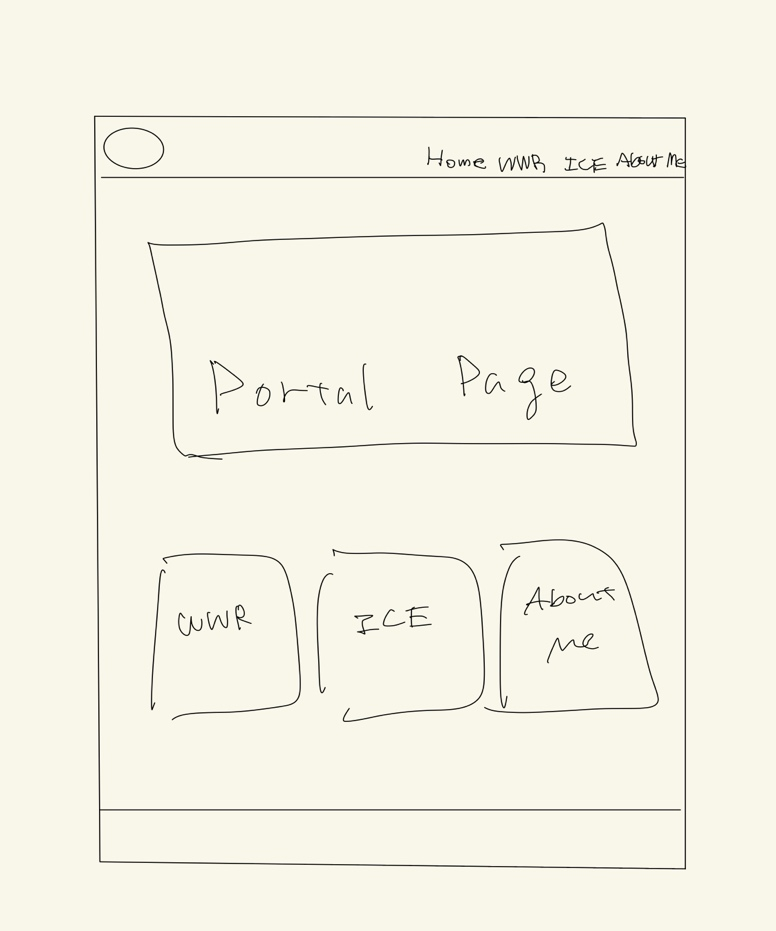 Home WWR ICE About Me
Portal Page
WWR
ICE
About
Me